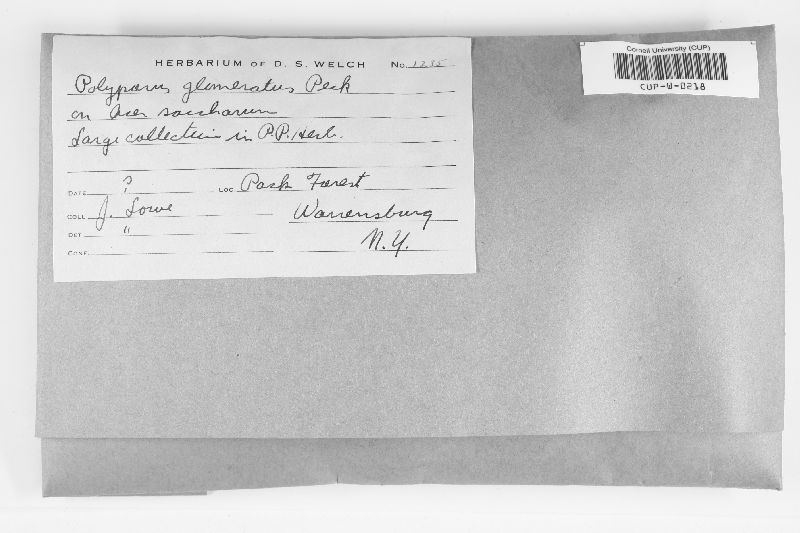 HERBARIUM OF D. S. WELCH No. 1285
Polyporus glomeratus Peck
on Acer saccharum
Large collection in P.P. Herb.
DATE ? LOC Pack Forest
COLL J. Lowe Warrensburg
DET " N.Y.
CONF.
Cornell University (CUP)
CUP-W-0218